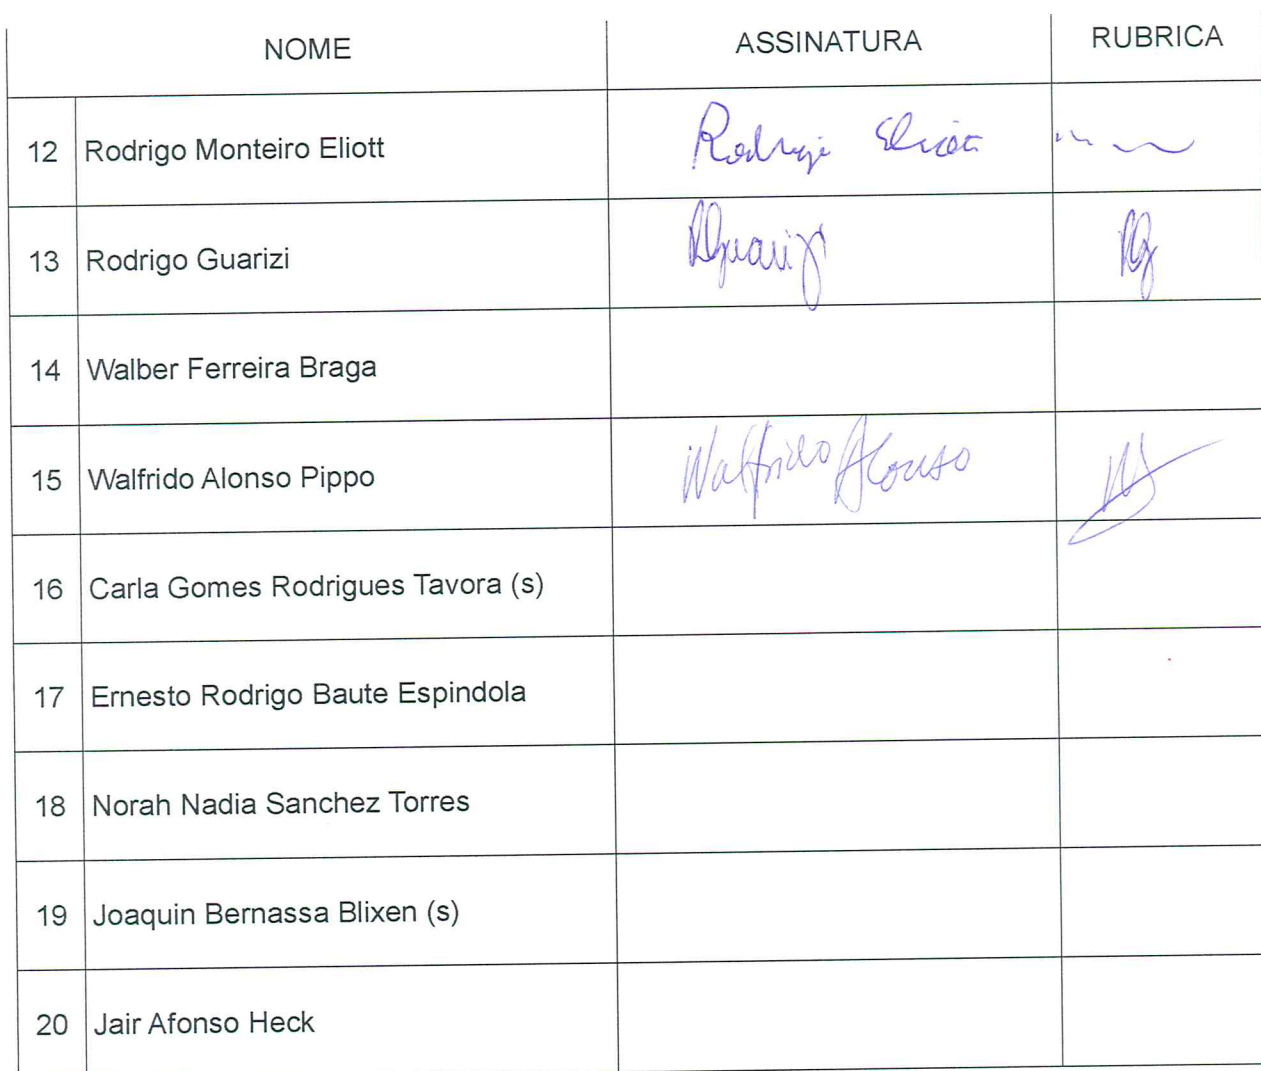 NOME ASSINATURA RUBRICA
12 Rodrigo Monteiro Eliott Rodrigo Eliott
13 Rodrigo Guarizi RGuarizi RG
14 Walber Ferreira Braga
15 Walfrido Alonso Pippo Walfrido Alonso
16 Carla Gomes Rodrigues Tavora (s)
17 Ernesto Rodrigo Baute Espindola
18 Norah Nadia Sanchez Torres
19 Joaquin Bernassa Blixen (s)
20 Jair Afonso Heck